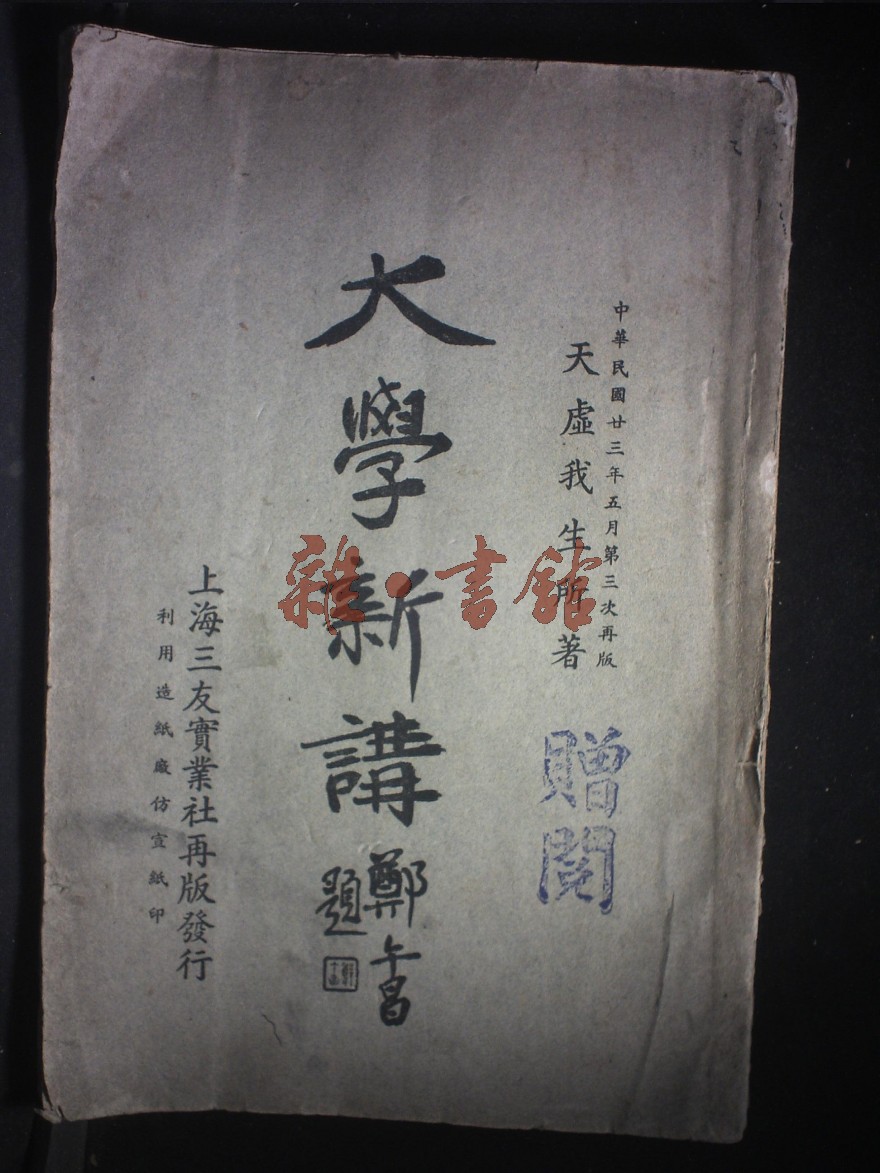 中華民國廿三年五月第三次再版
天虛我生所著
贈閱
大學新講
鄭午昌
題
上海三友實業社再版發行
利用造紙廠仿宣紙印
雜·書館